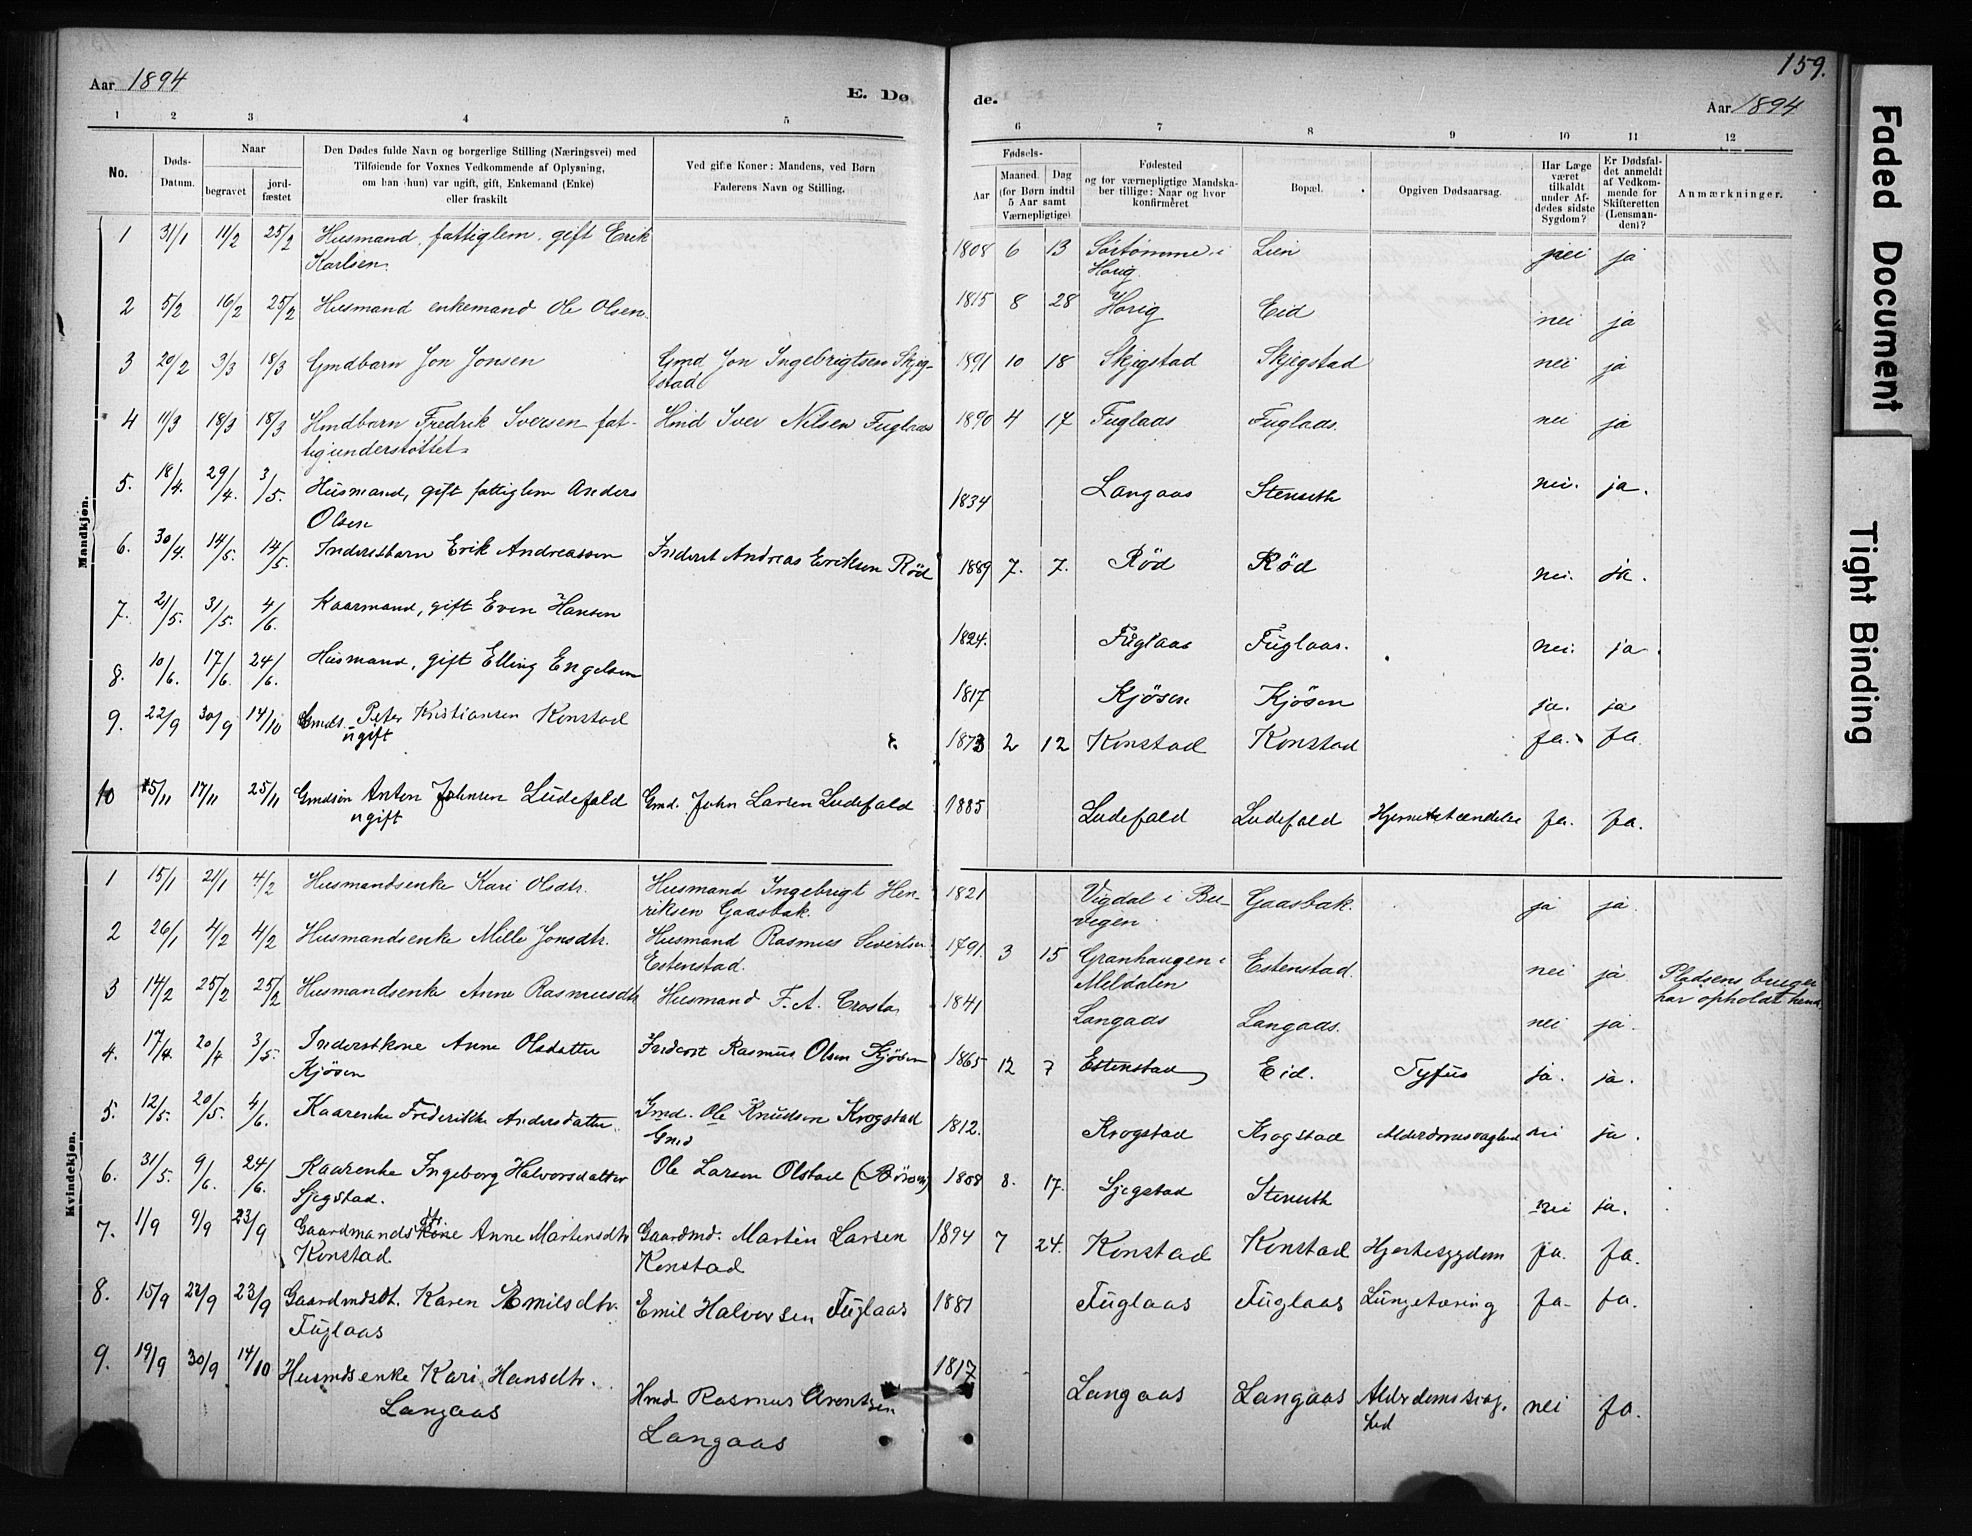 159.
Aar 1894
E. Dø
de.
Aar 1894
1 2 3 4 5 6 7 8 9 10 11 12
No.
Døds-Datum.
Naar
begravet
jord-fæstet
Den Dødes fulde Navn og borgerlige Stilling (Næringsvei) med
Tilføiende for Voxnes Vedkommende af Oplysning,
om han (hun) var ugift, gift, Enkemand (Enke)
eller fraskilt
Ved gifte Koner: Mandens, ved Børn
Faderens Navn og Stilling.
Fødsels-
Aar
Maaned. Dag
(for Børn indtil
5 Aar samt
Værnepligtige)
Fødested
og for værnepligtige Mandska-
ber tillige: Naar og hvor
konfirmeret
Bopæl.
Opgiven Dødsaarsag.
Har Læge
været
tilkaldt
under Af-
dødes sidste
Sygdom?
Er Dødsfal-
det anmeldt
af Vedkom-
mende for
Skifteretten
(Lensman-
den)?
Anmærkninger.
Mandkjøn.
1 31/1 11/2 25/2 Husmand, fattiglem, gift Erik 1808 6 13 Sørtømme i Lien nei ja
Karlsen. Horig
2 5/2 16/2 25/2 Husmand enkemand Ole Olsen. 1815 8 28 Horig Eid nei ja
3 20/2 3/3 18/3 Gmdbarn Jon Jonsen Gmd. Jon Ingebrigtsen Skjeg- 1891 10 18 Skjegstad Skjegstad nei ja
stad
4 11/3 18/3 18/3 Hmdbarn Fredrik Iversen fat- Hmd Iver Nilsen Fuglaas 1890 4 17 Fuglaas Fuglaas. nei ja
tigunderstøttet.
5. 18/4. 29/4. 3/5. Husmand, gift fattiglem Anders 1834 Langaas Stenseth nei. ja.
Olsen
6. 30/4. 14/5. 14/5. Inderstbarn Erik Andreassen Inderst Andreas Eriksen Rød 1889 7. 7. Rød Rød nei. ja.
7. 21/5. 31/5. 4/6. Kaarmand, gift Even Hansen 1824. Fuglaas Fuglaas. nei. ja.
8. 10/6. 17/6. 24/6. Husmand, gift Elling Engelsen 1817 Kjøsen Kjøsen ja. ja
9. 22/9 30/9 14/10 Gmds. Peter Kristiansen Konstad 1873 2 12 Konstad Konstad ja. ja.
ugift
10 15/11 17/11 25/11 Gmdsøn Anton Johnsen Ludefald Gmd. John Larsen Ludefald 1885 Ludefald Ludefald Hjernebetændelse ja. ja.
ugift
Kvindekjøn.
1 15/1 21/1 4/2 Husmandsenke Kari Olsdtr. Husmand Ingebrigt Hen- 1821 Vigdal i Bu- Gaasbak. ja ja.
riksen Gaasbak. vegen
2 26/1 4/2 4/2 Husmandsenke Mille Jonsdtr. Husmand Rasmus Sivertsen 1791. 3 15 Granhaugen i Estenstad. nei ja.
Estenstad. Meldalen
3 14/2 25/2 25/2 Husmandsenke Anne Rasmusdtr Husmand F. A. Crosta 1841 Langaas Langaas. nei ja. Pladsens bruger
har opholdt hende
4. 17/4. 20/4 3/5. Inderstkone Anne Olsdatter Inderst Rasmus Olsen Kjøsen 1865 12 7 Estenstad Eid. Tyfus ja. ja.
Kjøsen
5. 12/5. 20/5. 4/6. Kaarenke Frederikke Andersdatter. Gmd. Ole Knudsen Krogstad 1812. Krogstad Krogstad Alderdomssvaghed nei ja.
6. 31/5. 9/6. 24/6. Kaarenke Ingeborg Halvorsdatter Gmd Ole Larsen Olstad (Børsen) 1808 8. 17. Sjegstad Stenseth nei ja.
Sjegstad.
7. 1/9 9/9 23/9 Gaardmandsdtr Anne Martinsdtr Gaardmd. Martin Larsen 1894 7 24. Konstad Konstad Hjertesygdom ja. ja.
Konstad Konstad
8. 15/9 23/9 23/9 Gaardmdsdt. Karen Emilsdtr. Emil Halvorsen Fuglaas 1881 Fuglaas Fuglaas Lungetæring ja. ja.
Fuglaas
9. 19/9 30/9 14/10 Husmdsenke Kari Hansdtr. Hmd Rasmus Arentsen 1817 Langaas Langaas Alderdomssvag- nei ja.
Langaas Langaas hed
Faded Document
Tight Binding